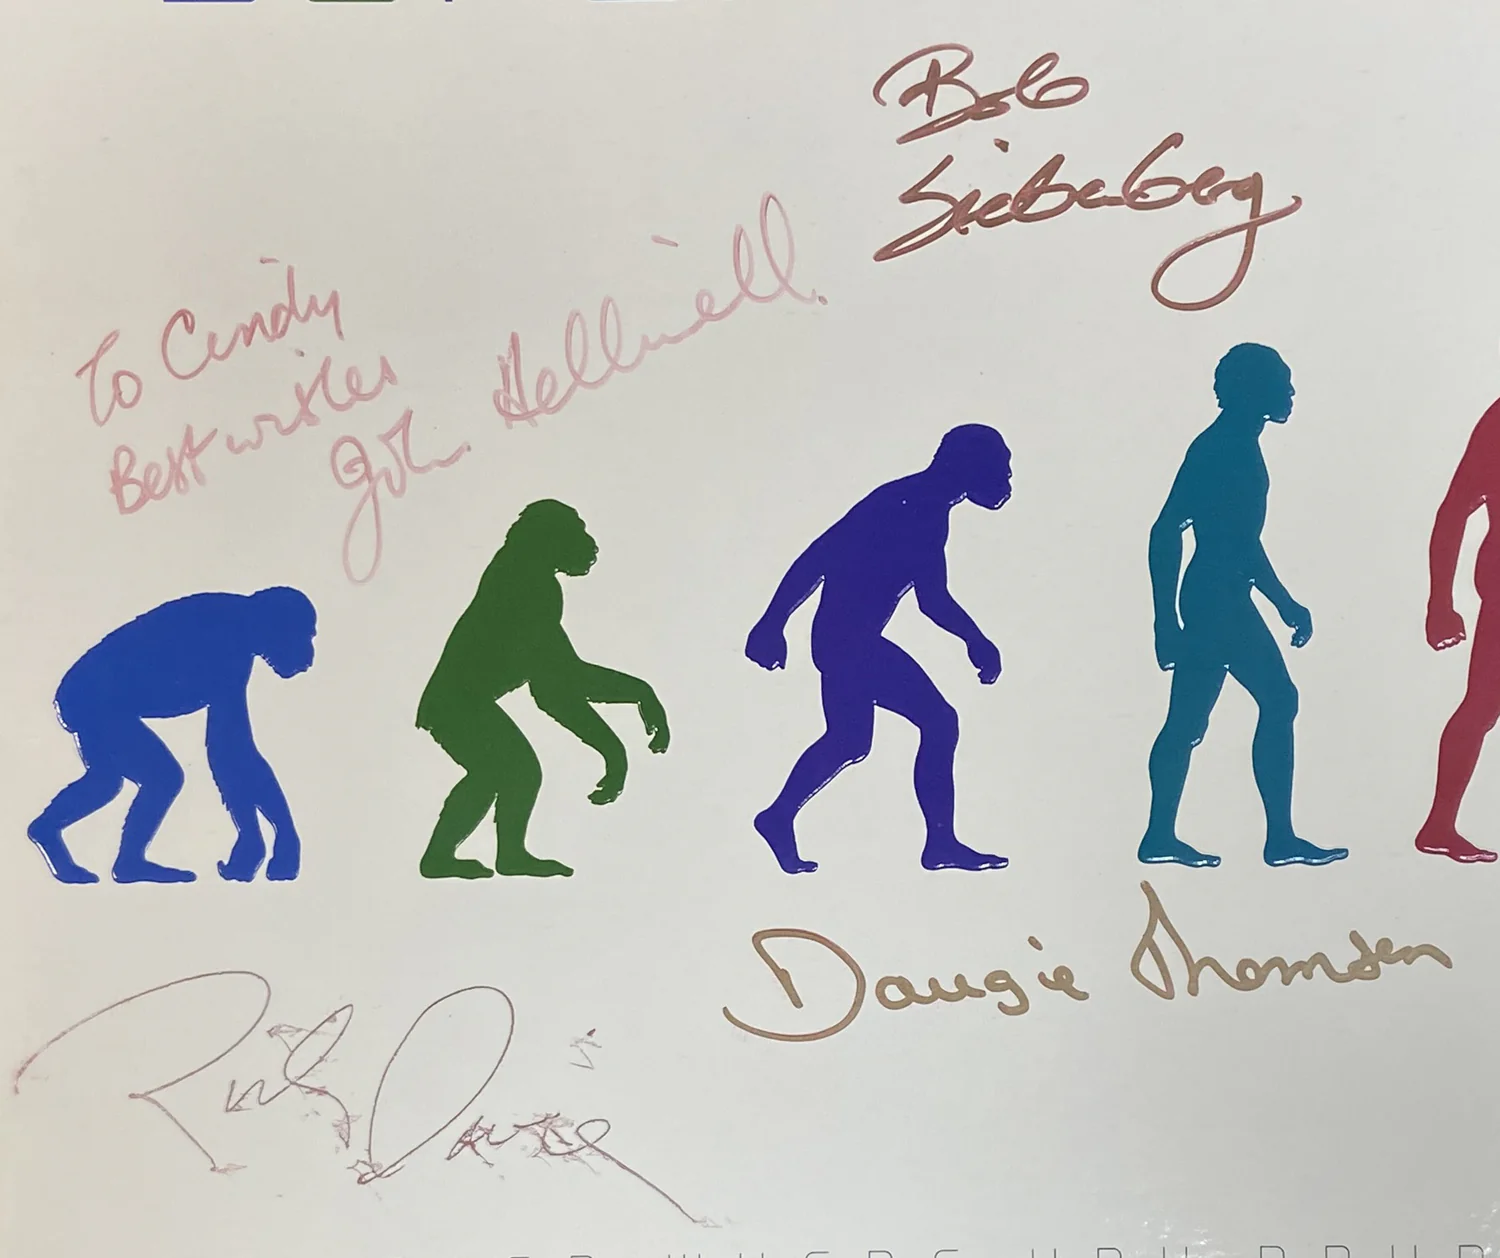 Bob
Siebenberg
To Cindy
Best wishes
John Helliwell.
Dougie Thomson
Rick Davies